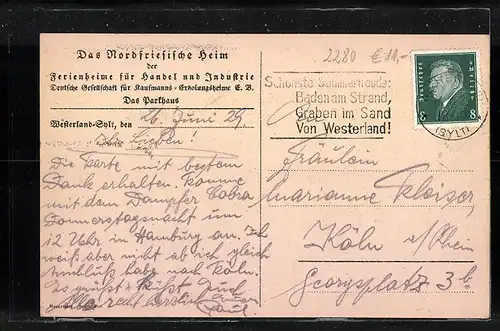 Das Nordfriesische Heim
der
Ferienheime für Handel und Industrie
Deutsche Gesellschaft für Kaufmanns-Erholungsheime E. V.
Das Parkhaus
Westerland-Sylt, den 26. Juni 29
Ihr Lieben!
Die Karte mit bestem
Dank erhalten. Komme
mit dem Dampfer Cobra
Donnerstagnacht um
12 Uhr in Hamburg an. Ich
weiß aber nicht ob ich gleich
Anschluß habe nach Köln.
Es grüßt & küßt Euch
alle recht herzlich Euer
Paul.
2280 € 11,-
Schönste Sommerfreude:
Baden am Strand,
Graben im Sand
Von Westerland!
Deutsches Reich
8 8
(SYLT)
Fräulein
Marianne Kleiser
Köln a/Rhein
Georgsplatz 3b